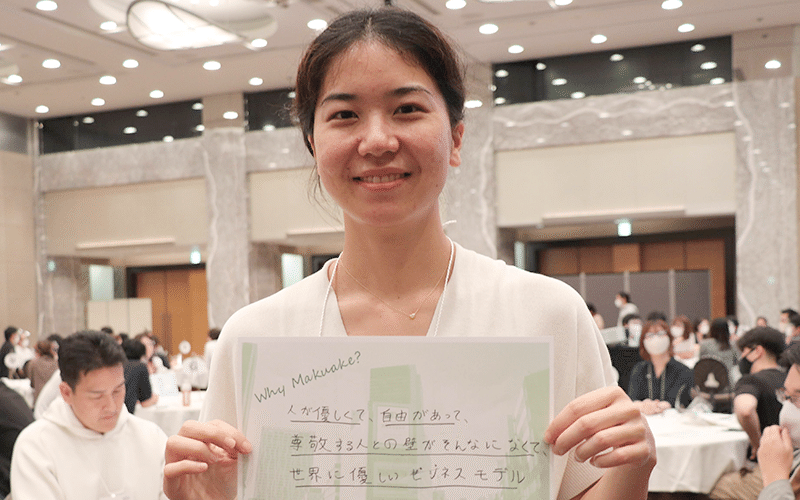 Why Makuake?
人が優しくて、自由があって、
尊敬する人との壁がそんなになくて、
世界に優しいビジネスモデル